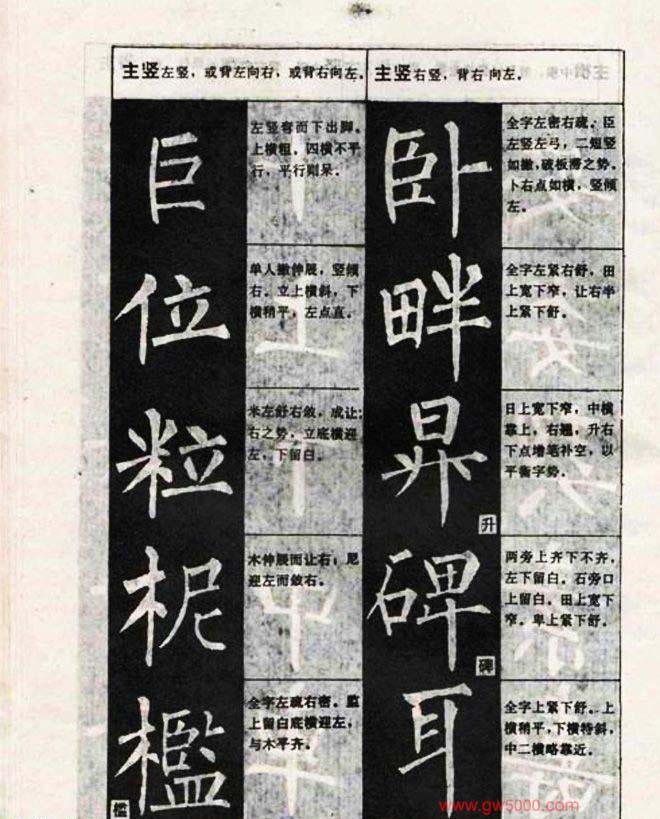 主竖左竖，或背左向右，或背右向左。
主竖右竖，背右向左。
巨
左竖弯而下出脚。
上横粗，四横不平
行，平行则呆。
卧
全字左密右疏。臣
左竖左弓，二短竖
如撇，破板滞之势。
卜右点如横，竖倾
左。
位
单人撇伸展，竖倾
右。立上横斜，下
横稍平，左点直。
畔
全字左紧右舒，田
上宽下窄，让右半
上紧下舒。
粒
米左舒右敛，成让
右之势，立底横迎
左，下留白。
昇
升
日上宽下窄，中横
靠上，右翘，升右
下点增笔补空，以
平衡字势。
柅
木伸展而让右；尼
迎左而敛右。
碑
碑
两旁上齐下不齐，
左下留白。石旁口
上留白。田上宽下
窄。卑上紧下舒。
檻
槛
全字左疏右密。监
上留白底横迎左，
与木平齐。
耳
全字上紧下舒。上
横稍平，下横特斜，
中二横略靠近。
www.gw5000.com